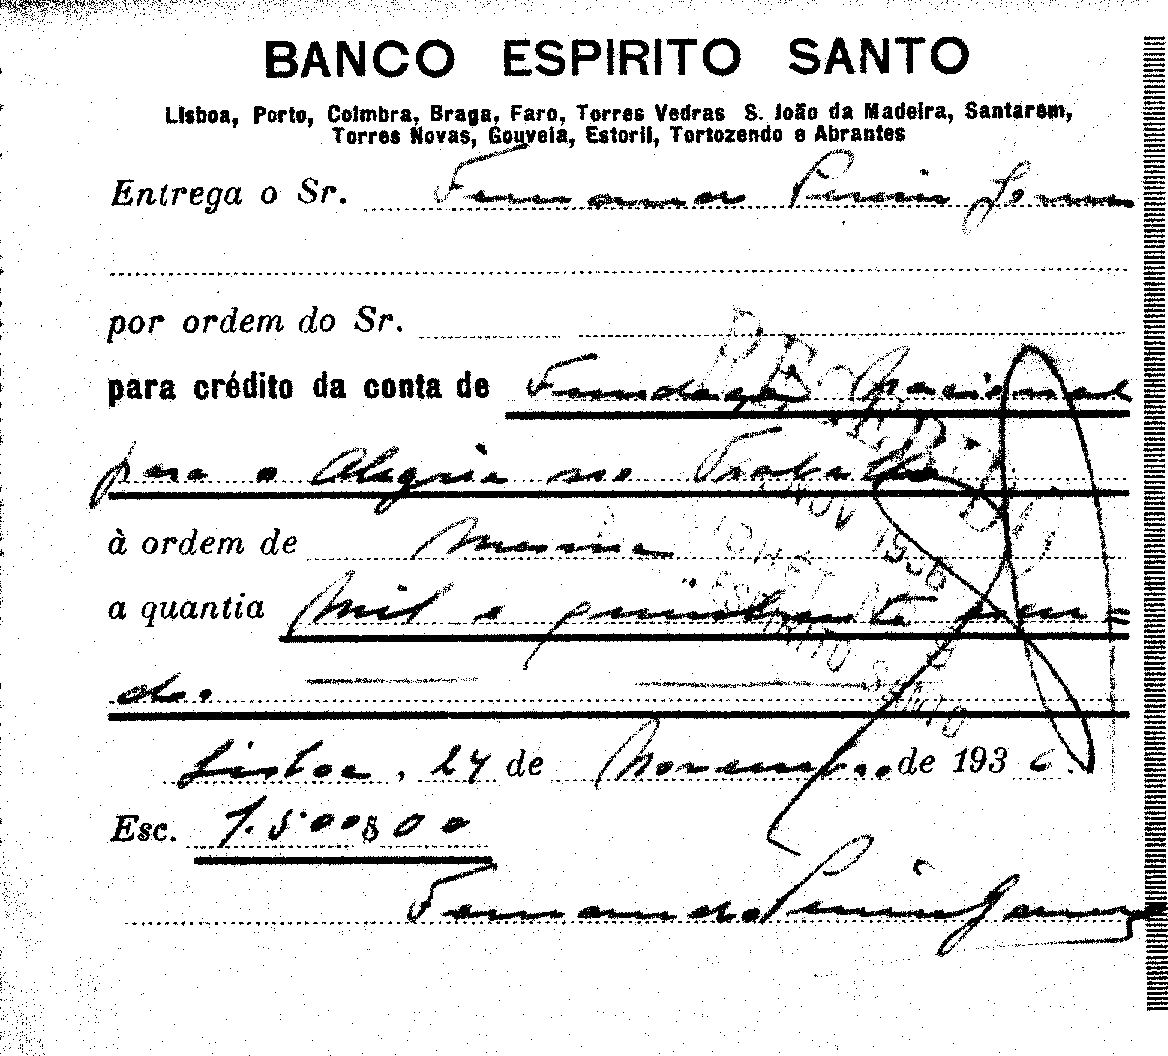 BANCO ESPIRITO SANTO
Lisboa, Porto, Coimbra, Braga, Faro, Torres Vedras S. João da Madeira, Santarem,
Torres Novas, Gouveia, Estoril, Tortozendo e Abrantes
Entrega o Sr. Fernando
por ordem do Sr.
para crédito da conta de Fundação Nacional
para a Alegria no Trabalho
à ordem de Mesma
a quantia Mil e quinhentos escu=
dos
Lisboa, 27 de Novembro de 1936.
Esc. 1.500$00
Fernando
NOV 1936
ESPIRITO SANTO